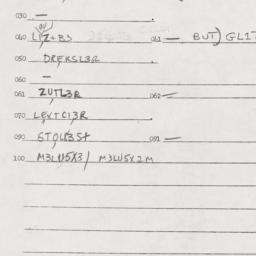 030 —
040 LIZ+B3 061 — BUT) GLIT
050 DREKSL3R
060 —
061 ZUTL3R 062 —
070 LEXTCI3R
090 STOLB3S+ 091 —
100 M3LU5X3/ M3LU5X2M